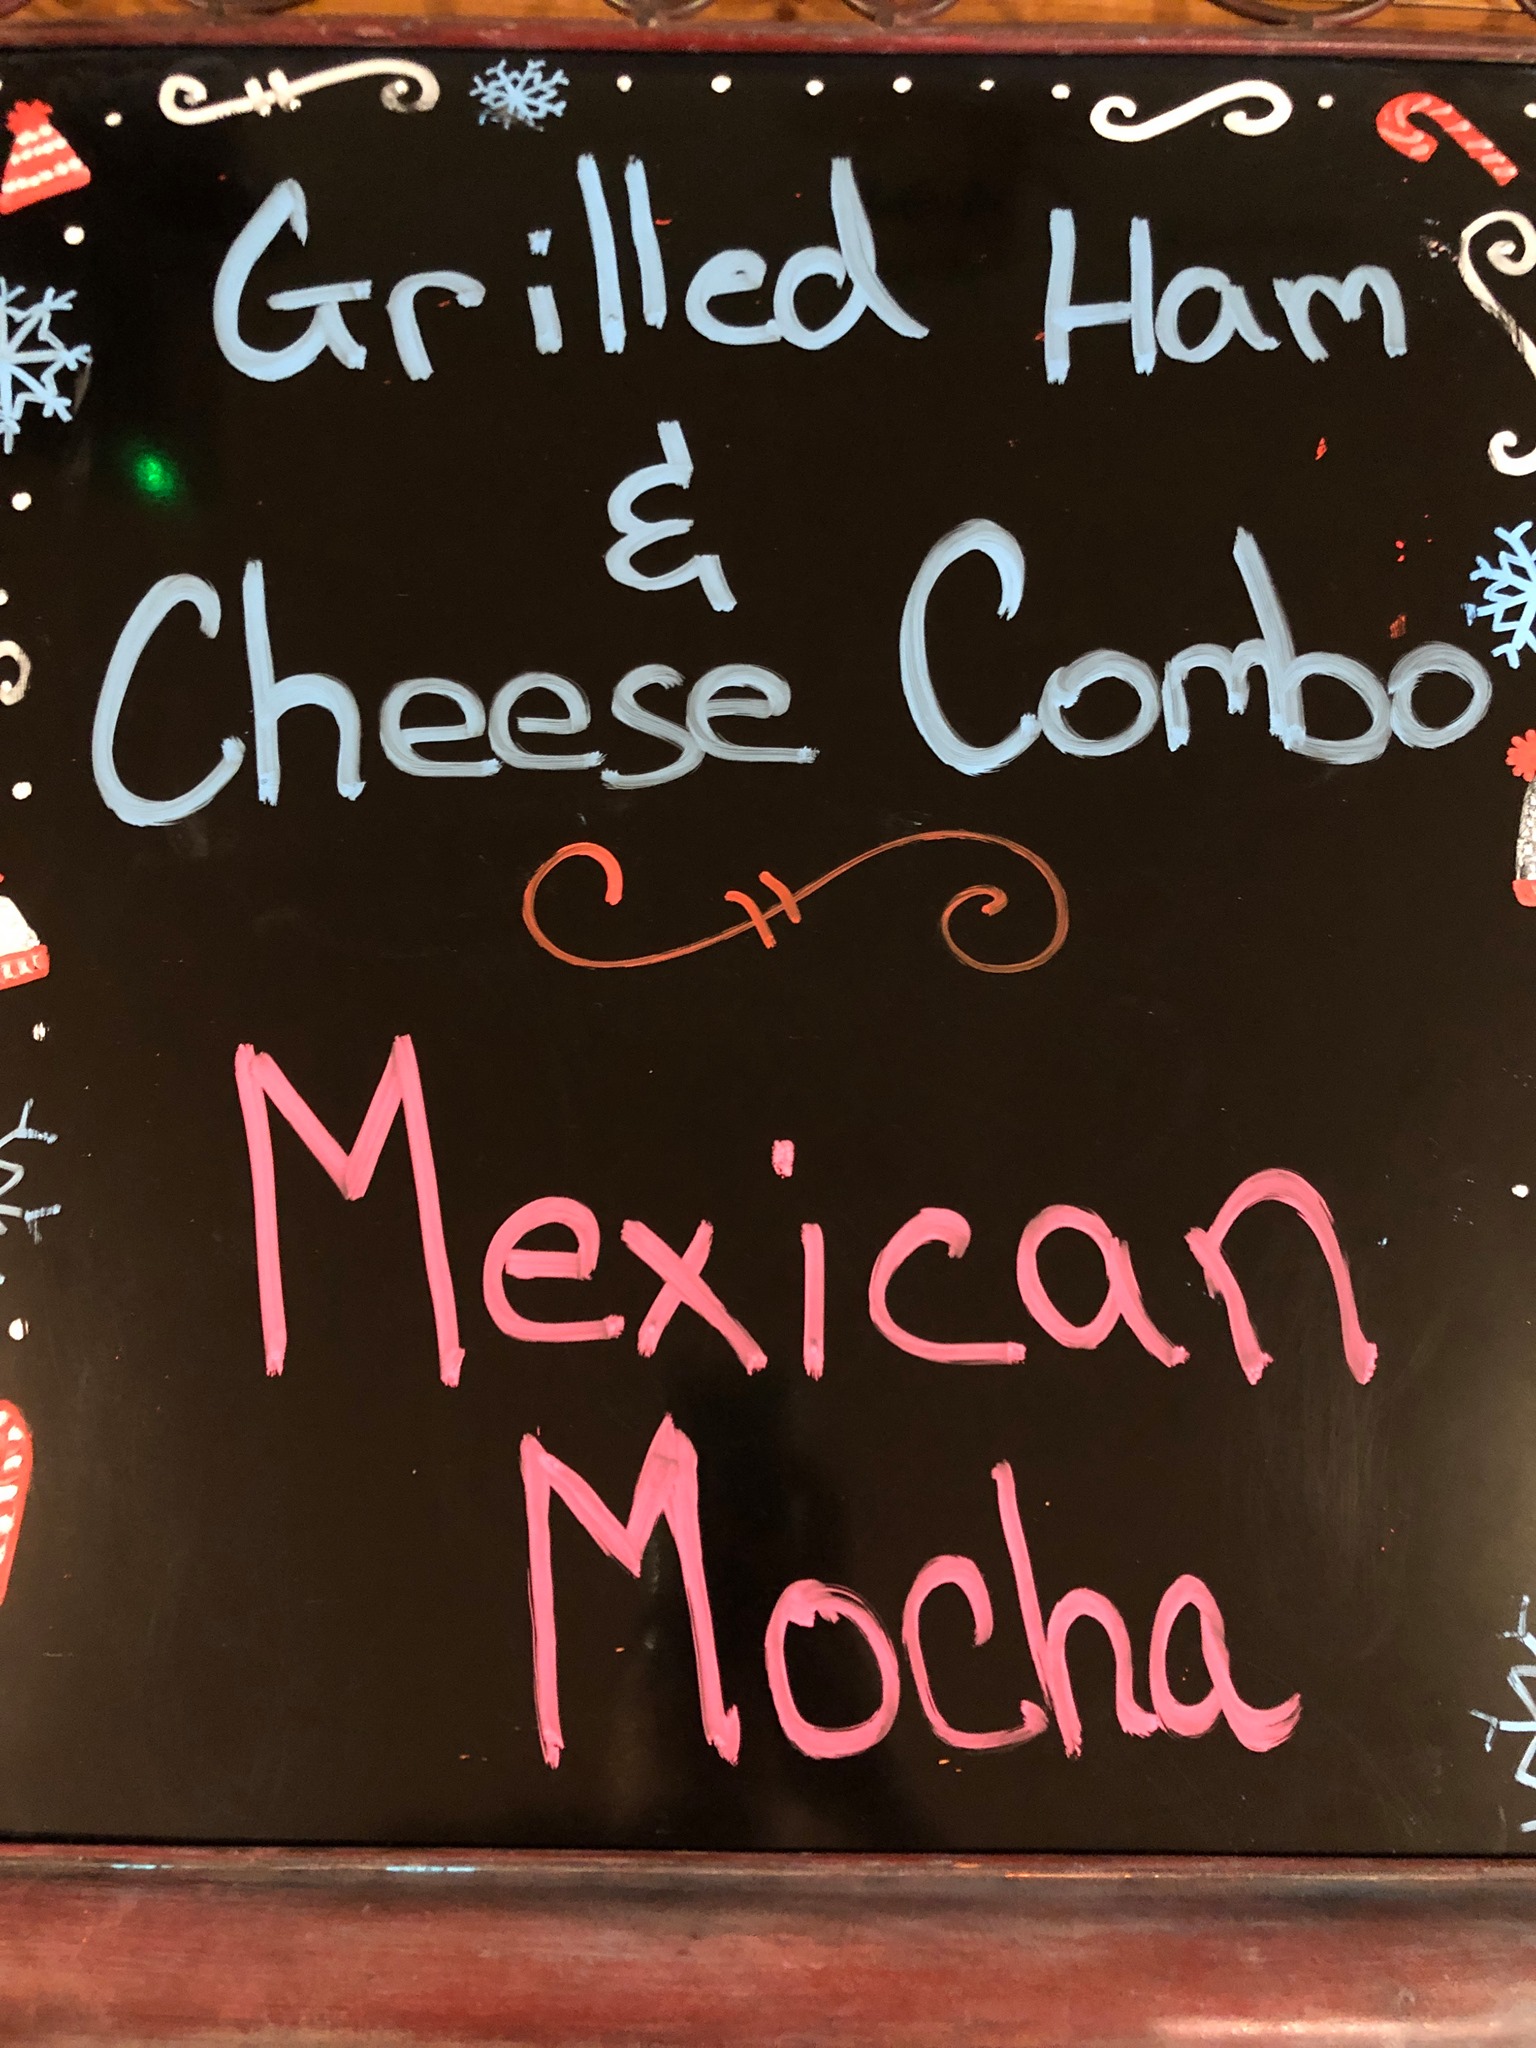 Grilled Ham
&
Cheese Combo
Mexican
Mocha